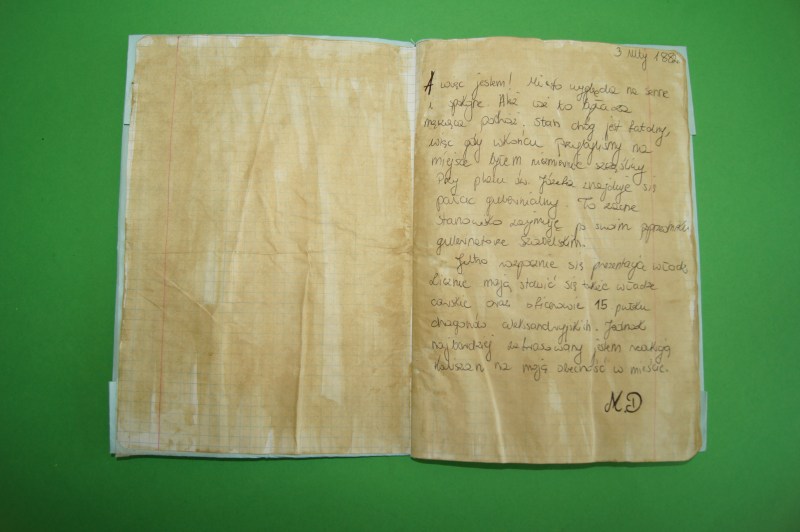 3 luty 188
A więc jestem! Miasto wygląda na senne
i spokojne. Ależ
męcząca podróż. Stan dróg jest fatalny,
więc gdy wkońcu przybyliśmy na
miejsce byłem niezmiernie szczęśliwy.
Przy placu św. Józefa znajduje się
pałac gubernialny. To zacne
stanowisko zajmuję po swoim poprzedniku
gubernatorze Szabelskim.
Jutro rozpocznie się prezentacja władz.
Licznie mają stawić się także władze
carskie oraz oficerowie 15 pułku
dragonów aleksandryjskich. Jednak
najbardziej zainteresowany jestem reakcją
kaliszan na moją obecność w mieście.
MD